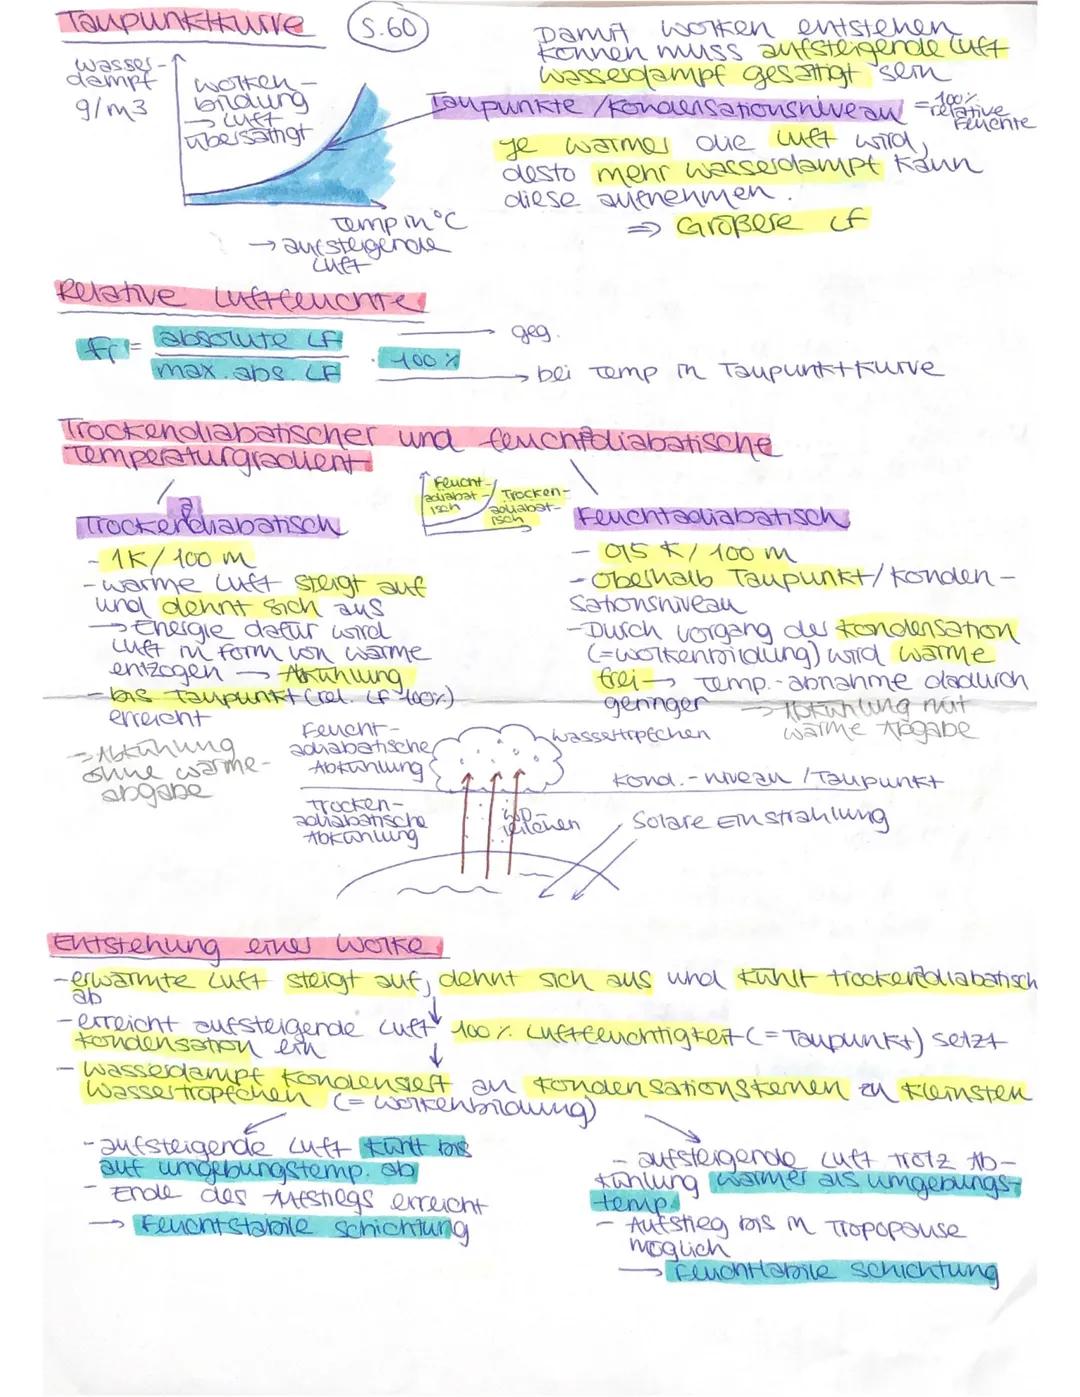 Taupunktkurve
S.60
Wasser-
dampf
g/m3
Wolken-
bildung
→ Luft
übersättigt
Temp in °C
→ aufsteigende
Luft
Damit Wolken entstehen
können muss aufsteigende Luft
wasserdampf gesättigt sein
Taupunkte / Kondensationsniveau = 100%
relative
Feuchte
Je wärmer die Luft wird,
desto mehr Wasserdampf kann
diese aufnehmen.
⇒ Größere LF
Relative Luftfeuchte
fr = absolute LF
max. abs. LF
· 100 %
→ geg.
→ bei Temp in Taupunktkurve
Trockendiabatischer und feuchtadiabatische
Temperaturgradient
Feucht-
adiabat-
isch
Trocken-
adiabat-
isch
Trockenadiabatisch
- 1K/100 m
- warme Luft steigt auf
und dehnt sich aus
→ Energie dafür wird
Luft in Form von Wärme
entzogen → Abkühlung
- bis Taupunkt (rel. LF 100%)
erreicht
→ Abkühlung
ohne wärme-
abgabe
Feuchtadiabatisch
- 0,5 K/100 m
- Oberhalb Taupunkt/Konden-
sationsniveau
- Durch Vorgang der Kondensation
(=Wolkenbildung) wird Wärme
frei → Temp.-abnahme dadurch
geringer
→ Abkühlung mit
wärme Abgabe
Feucht-
adiabatische
Abkühlung
Wassertröpfchen
Kond.-niveau / Taupunkt
Trocken-
adiabatische
Abkühlung
WD-
teilchen
Solare Einstrahlung
Entstehung einer Wolke
- erwärmte Luft steigt auf, dehnt sich aus und kühlt trockenadiabatisch
ab
- erreicht aufsteigende Luft 100 % Luftfeuchtigkeit (= Taupunkt) setzt
Kondensation ein
- Wasserdampf kondensiert an Kondensationskernen zu kleinsten
Wassertröpfchen (= Wolkenbildung)
- aufsteigende Luft kühlt bis
auf umgebungstemp. ab
- Ende des Aufstiegs erreicht
→ Feuchtstabile Schichtung
- aufsteigende Luft trotz Ab-
kühlung wärmer als umgebungs-
temp.
- Aufstieg bis in Tropopause
möglich
→ feuchtlabile Schichtung